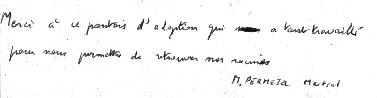 Merci à ce pantois d'adoption qui a tant travaillé
pour nous permettre de retrouver nos racines
M. PERMETA